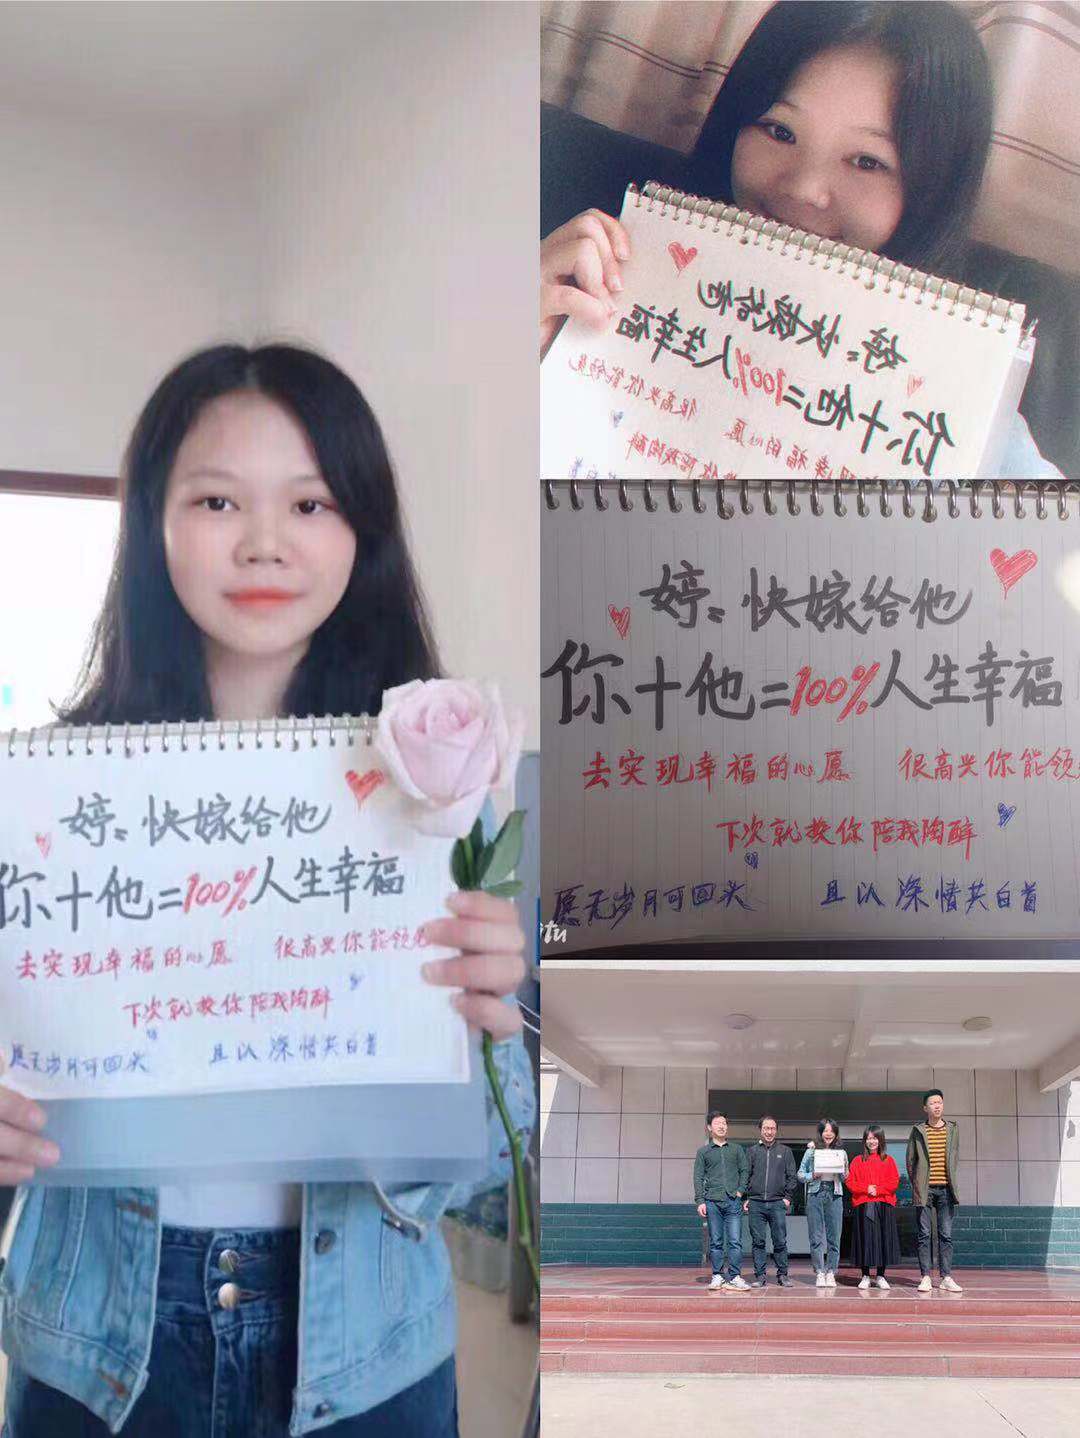 婷：快嫁给他
你十他=100%人生幸福
去实现幸福的心愿 很高兴你能领
下次就换你陪我陶醉
愿无岁月可回头 且以深情共白首
婷：快嫁给他
你十他=100%人生幸福
现幸福的心愿 很高兴你能领
换你陪我陶醉
婷：快嫁给他
你十他=100%人生幸福
去实现幸福的心愿 很高兴你能领
下次就换你陪我陶醉
愿无岁月可回头 且以深情共白首
itu